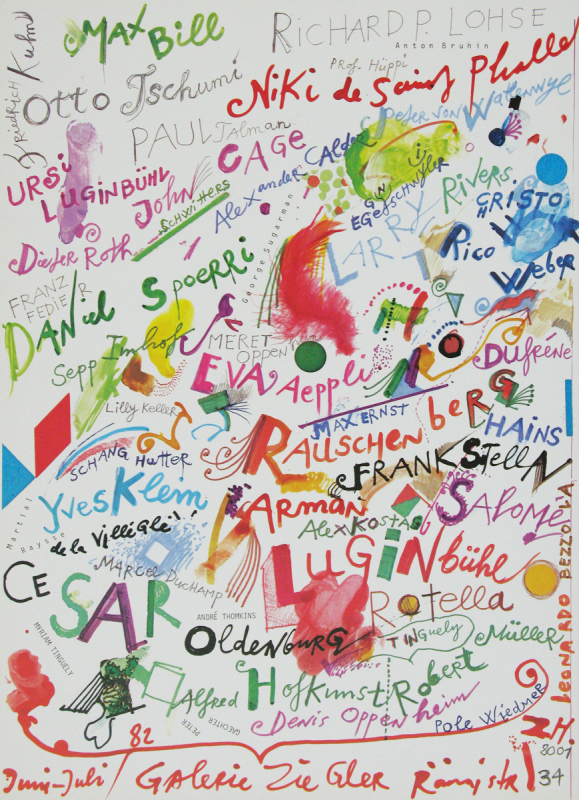 MAX Bill
RiCHARD P. LOHSE
Anton Bruhin
Friedrich Kuhn
Prof. Hüppi
Otto Tschumi
Niki de Saint Phalle
PAUL Talman
Peter von Wattenwyl
URSi LUGiNBÜHL
JOHN CAGE
SCHWiTTERS
Alexander CALDER
EGGetSCHWyler
LARRY RiVERS
CRISTO
H
Dieter Roth
George Sugarman
Rico Weber
FRANZ FEDiER
DANiel Spoerri
Sepp Imhof
MERET Oppenheim
EVA Aeppli
DUfrêne
Lilly Keller
MAX ERNST
SCHANG Hutter
RAUSCHENberG
HAiNS
FRANK STELLA
Martial Raysse
YvesKlein
ARMAN
SALOMÉ
de la Villeglé!!
ALEX KOSTAS
MARCEL DUCHAMP
LUGiNbühl
CESAR
ROTELLA
ANDRÉ THOMKINS
MYRIAM TINGUELY
OLDENBURG
TiNGuely
Müller
Alfred HofKunst
Robert
PETER GAECHTER
Denis Oppenheim
Pole Wiedmer
LEONARDO BEZZOLA
82
Juni-Juli / GALERiE ZiEGLER Rämistr 34
ZH.
8001